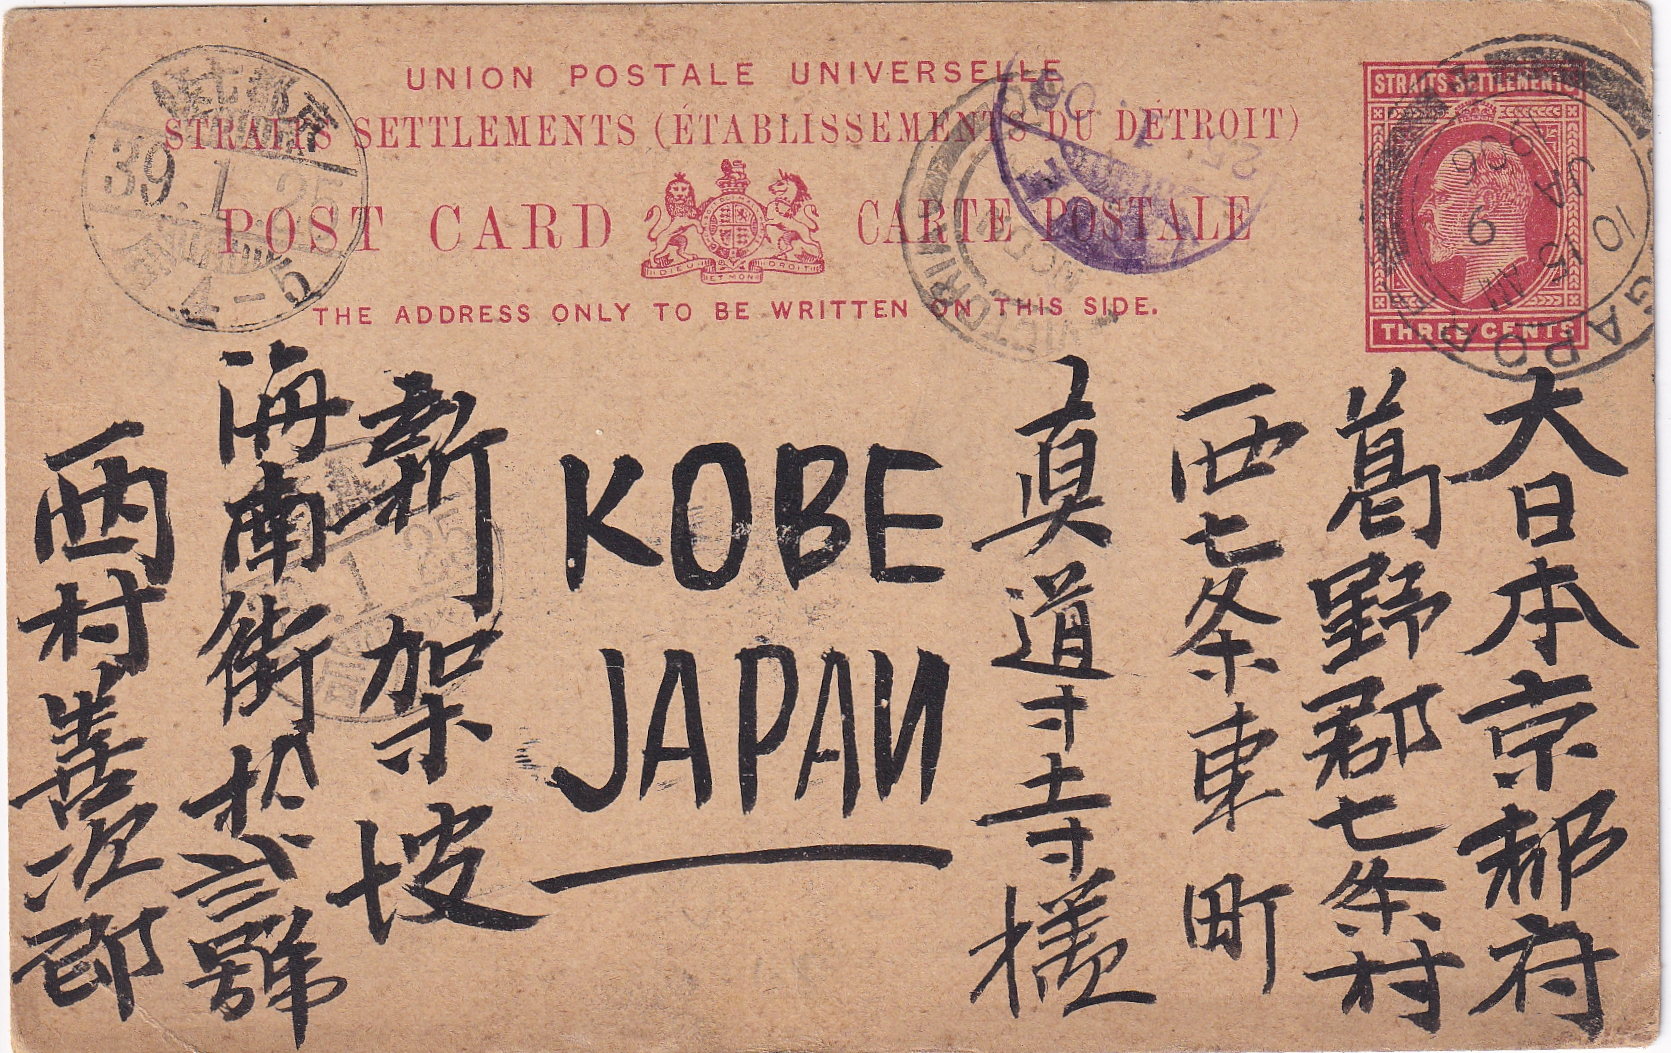 UNION POSTALE UNIVERSELLE
STRAITS SETTLEMENTS (ÉTABLISSEMENTS DU DÉTROIT)
POST CARD CARTE POSTALE
DIEU ET MON DROIT
THE ADDRESS ONLY TO BE WRITTEN ON THIS SIDE.
STRAITS SETTLEMENTS
THREE CENTS
SINGAPORE
10 15 AM
9 JA
1906
VICTORIA
KOBE
25 1 06
39.1.25
大日本京都府
葛野郡七条村
西七条東町
眞道寺様
KOBE
JAPAN
新架坡
海南街
號
西村善次郎